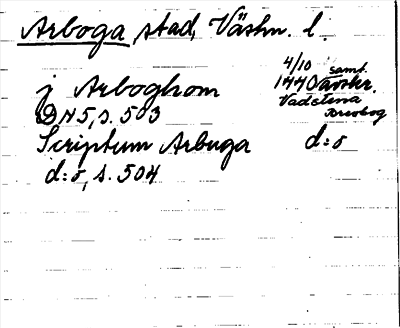 Arboga, stad, Västm. l.
j Arboghom
DN 5, s. 503
4/10
1440 samt. avskr.
Vadstena
brevbog
Scriptum Arbuga
d:o
d:o, s. 504